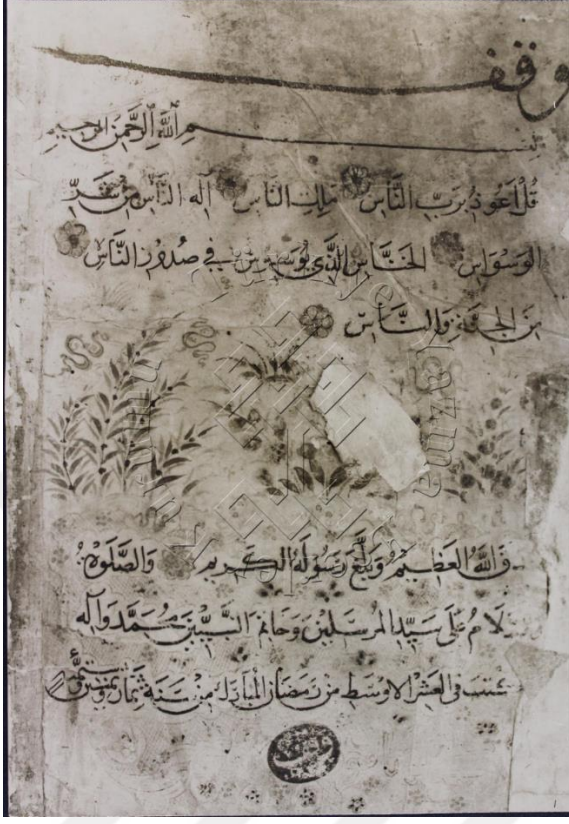 وقف
بِسْمِ اللَّهِ الرَّحْمَنِ الرَّحِيمِ
قُلْ اَعُوذُ بِرَبِّ النَّاسِ مَلِكِ النَّاسِ اِلَهِ النَّاسِ مِنْ شَرِّ
الوَسْوَاسِ الخَنَّاسِ الَّذِي يُوَسْوِسُ فِي صُدُورِ النَّاسِ
مِنَ الجِنَّةِ وَالنَّاسِ
ق اللَّهُ العَظِيمُ وَبَلَّغَ رَسُولُهُ الكَرِيم وَالصَّلوةُ
لَامُ عَلَى سَيِّدِ المُرْسَلِينَ وَخَاتَمِ النَّبِيِّينَ مُحَمَّدٍ وَآلِهِ
فِي العَشْرِ الاوسَطِ مِنْ رَمَضَانَ المُبَارَكِ مِنْ سَنَةِ ثَمَان